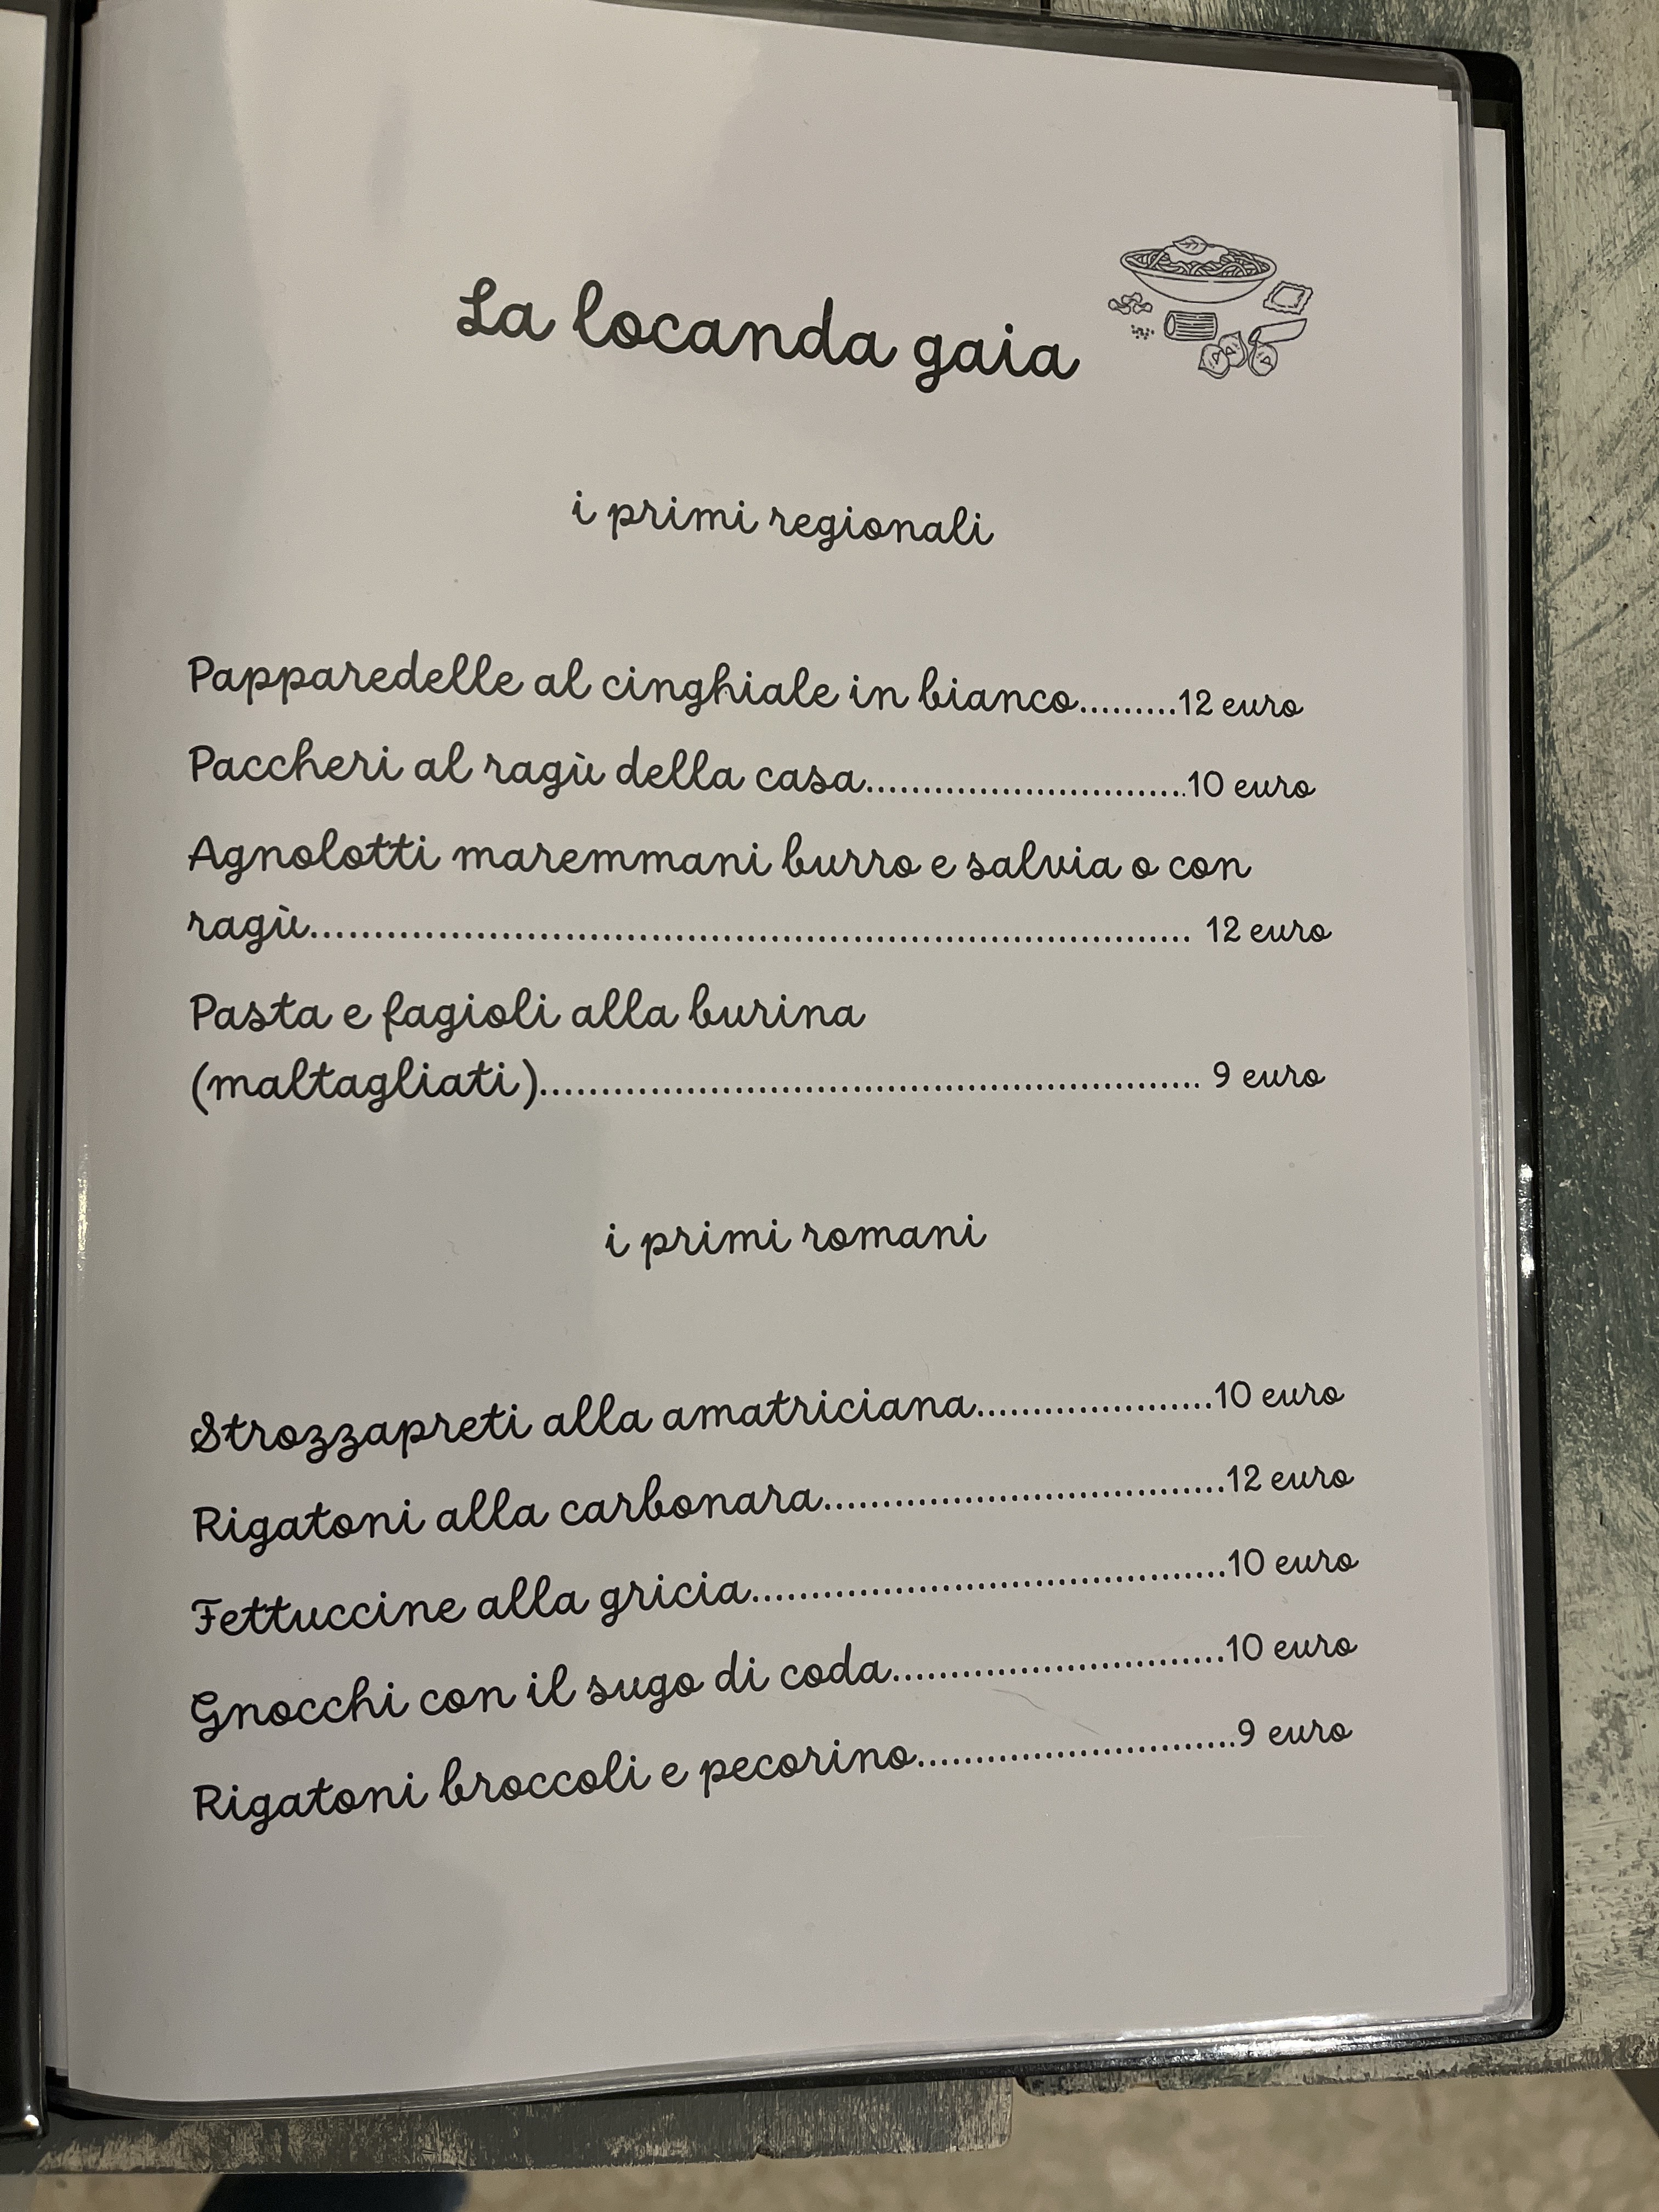 La locanda gaia
i primi regionali
Papparedelle al cinghiale in bianco.........12 euro
Paccheri al ragù della casa............................10 euro
Agnolotti maremmani burro e salvia o con
ragù............................................................................. 12 euro
Pasta e fagioli alla burina
(maltagliati).......................................................... 9 euro
i primi romani
Strozzapreti alla amatriciana.....................10 euro
Rigatoni alla carbonara...................................12 euro
Fettuccine alla gricia.........................................10 euro
Gnocchi con il sugo di coda.............................10 euro
Rigatoni broccoli e pecorino............................9 euro